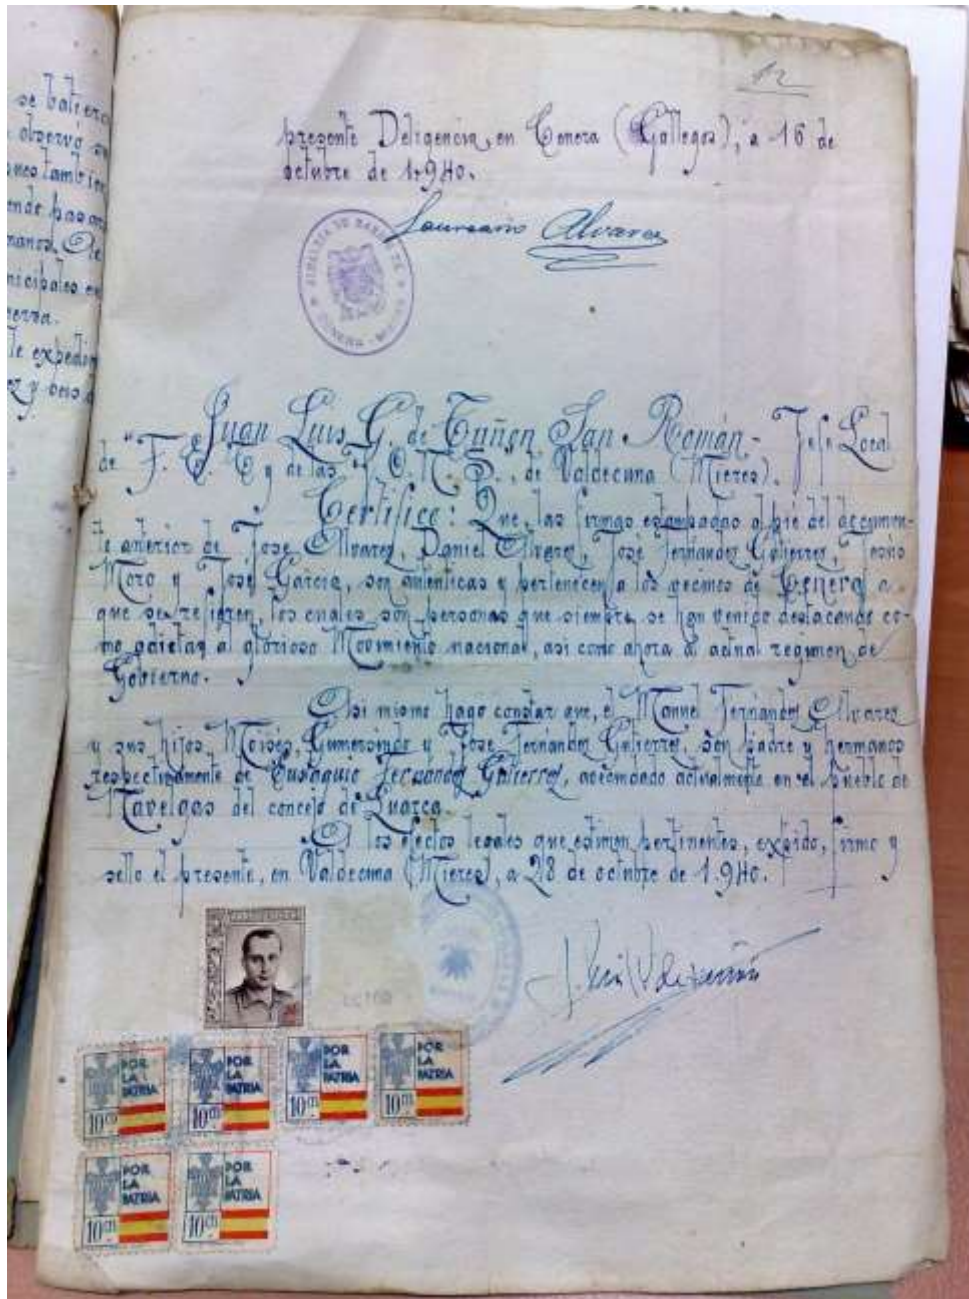 se batieron
observo
ones tambien
manos. De
nicipales en
uerra.
le expedir
12
presente Deligencia, en Cenera (Gallegos), a 16 de
octubre de 1.940.
Laureano Alvarez
Juan Luis G. de Tuñon San Román - Jefe Local
de "F. E. T y de las J. O. N. S., de Valdecuna (Mieres).
Certifico: Que, las firmas estampadas al pie del documen-
to anterior de Jose Alvarez, Daniel Alvarez, José Fernández Gutierrez, Jesús
Moro y José García, son autenticas y pertenecen a los vecinos de Cenera a
que se refieren, los cuales son personas que siempre se han venido destacando co-
mo adictas al glorioso Movimiento nacional, asi como ahora al actual regimen de
Gobierno.
Asi mismo hago constar que, el Manuel Fernández Alvarez
y sus hijos, Moisés, Gumersindo y Jose Fernández Gutierrez, son padre y hermanos
respectivamente de Eustaquio Fernández Gutierrez, acomodado actualmente en el pueblo de
Navelgas del concejo de Luarca.
A los efectos legales que estimen pertinentes, expido, firmo y
sello el presente, en Valdecuna (Mieres), a 28 de octubre de 1.940.
POR LA PATRIA
10 cts
POR LA PATRIA
10 cts
POR LA PATRIA
10 cts
POR LA PATRIA
10 cts
POR LA PATRIA
10 cts
POR LA PATRIA
10 cts